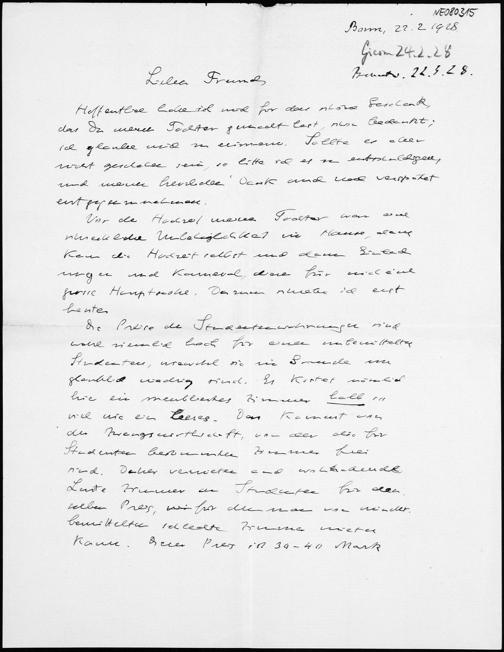 NE080315
Bonn, 22.2 1928
24.2.28
22.3.28.
Lieber Freund,
Hoffentlich habe ich mich für das schöne Geschenk,
das Du meiner Tochter gemacht hast, schon bedankt;
ich glaube mich zu erinnern. Sollte es aber
nicht geschehen sein, so bitte ich es zu entschuldigen,
und meinen herzlichen Dank auch noch verspätet
entgegenzunehmen.
Vor der Hochzeit meiner Tochter war eine
schreckliche Unbehaglichkeit im Hause, dann
kam die Hochzeit selbst und dann
und Karneval, der für mich eine
grosse Hauptsache. Darum schreibe ich erst
heute.
Die Preise der Studentenwohnungen sind
wohl ziemlich hoch für einen unbemittelten
Studenten, obwohl sie im Grunde un-
glaublich niedrig sind. Es kostet nämlich
hier ein möbliertes Zimmer halb so
viel wie ein leeres. Das kommt von
der Zwangswirtschaft, von der die für
Studenten bestimmten Zimmer frei
sind. Daher vermieten auch wohlhabende
Leute Zimmer an Studenten für den-
selben Preis, wie für den man von minder-
bemittelten schlechte Zimmer mieten
kann. Dieser Preis ist 30-40 Mark